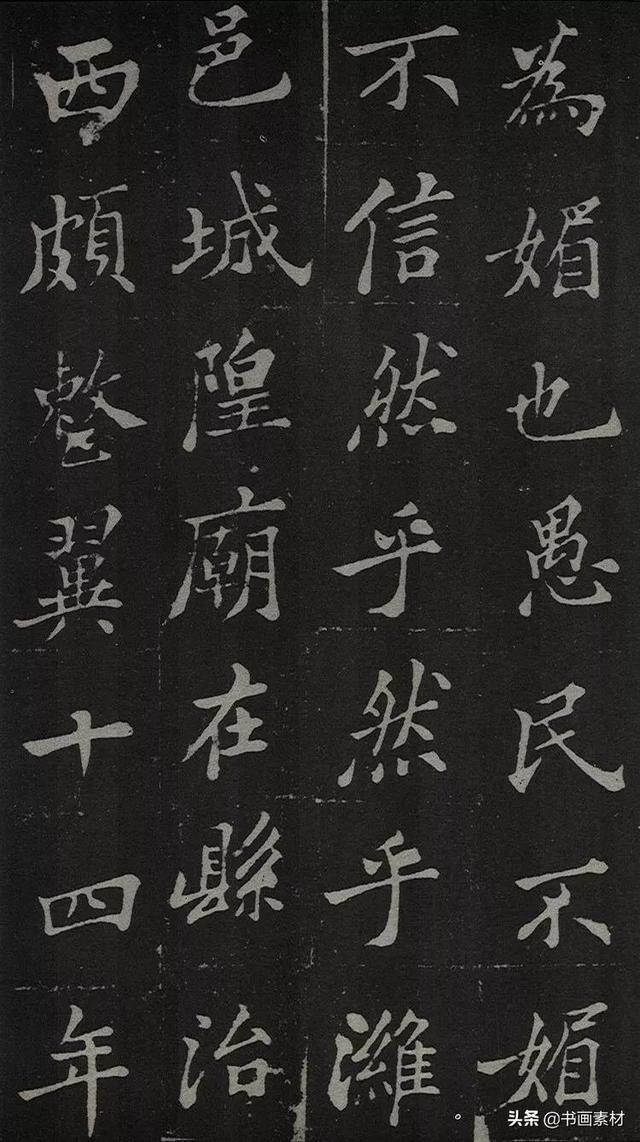 為媚也愚民不媚
不信然乎然乎濰
邑城隍廟在縣治
西頗整翼十四年
头条 @书画素材